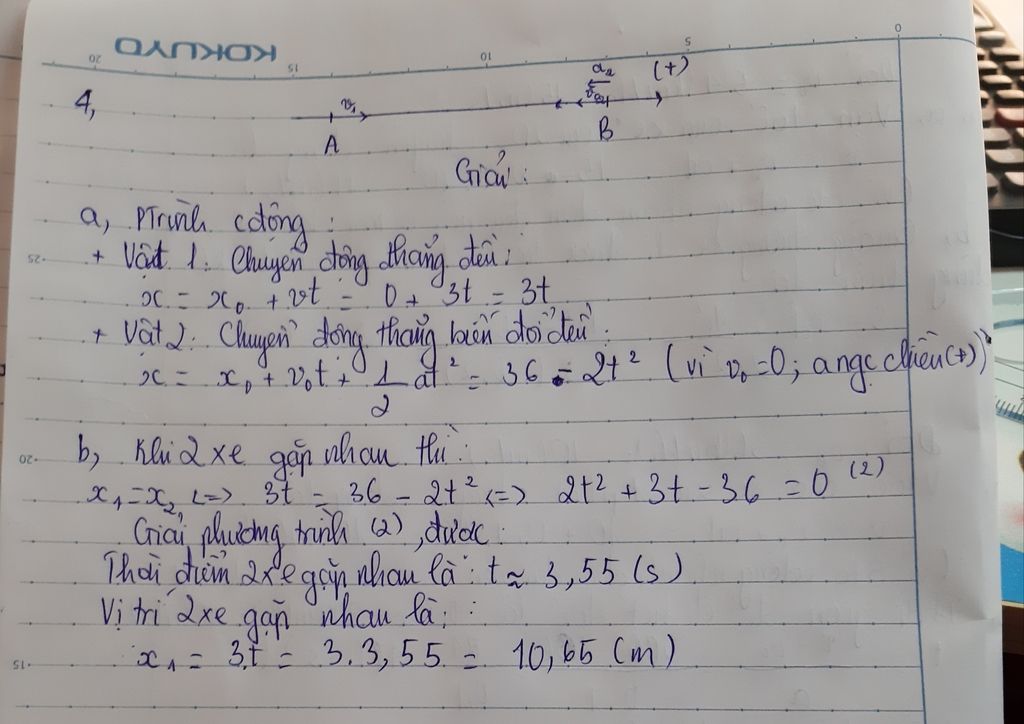 KOKUYO
20 15 10 5 0
4,
v₁ a₂ v₀₂ (+)
A B
Giải:
a, PTrình cđộng :
+ Vật 1: Chuyển động thẳng đều:
x = x₀ + vt = 0 + 3t = 3t
+ Vật 2: Chuyển động thẳng biến đổi đều:
x = x₀ + v₀t + 1/2 at² = 36 - 2t² (vì v₀ = 0; a ngc chiều (+))
25
b, Khi 2 xe gặp nhau thì:
20
x₁ = x₂, <=> 3t = 36 - 2t² <=> 2t² + 3t - 36 = 0 (2)
Giải phương trình (2), được:
Thời điểm 2 xe gặp nhau là: t ≈ 3,55 (s)
Vị trí 2 xe gặp nhau là:
x₁ = 3.t = 3.3,55 = 10,65 (m)
15